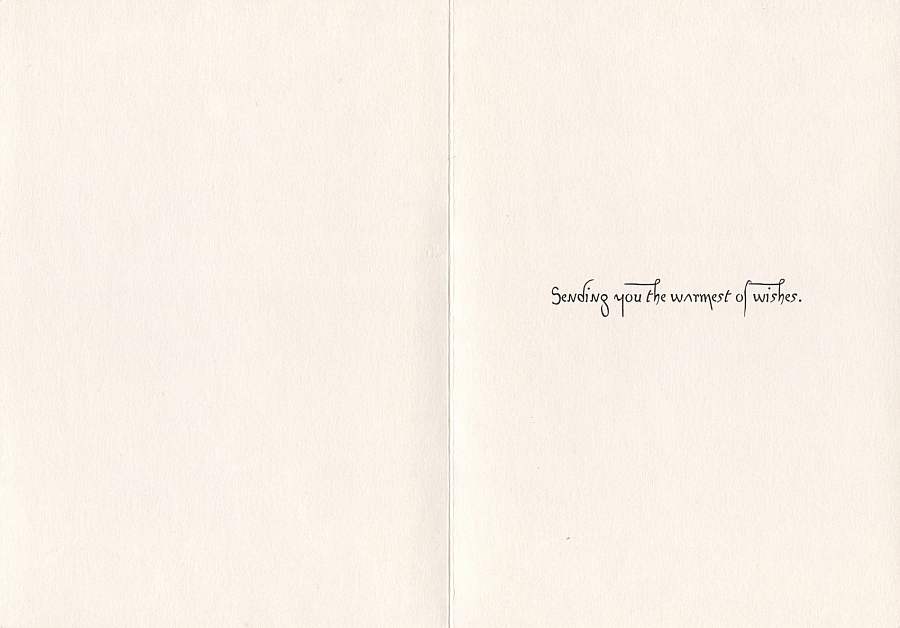 Sending you the warmest of wishes.